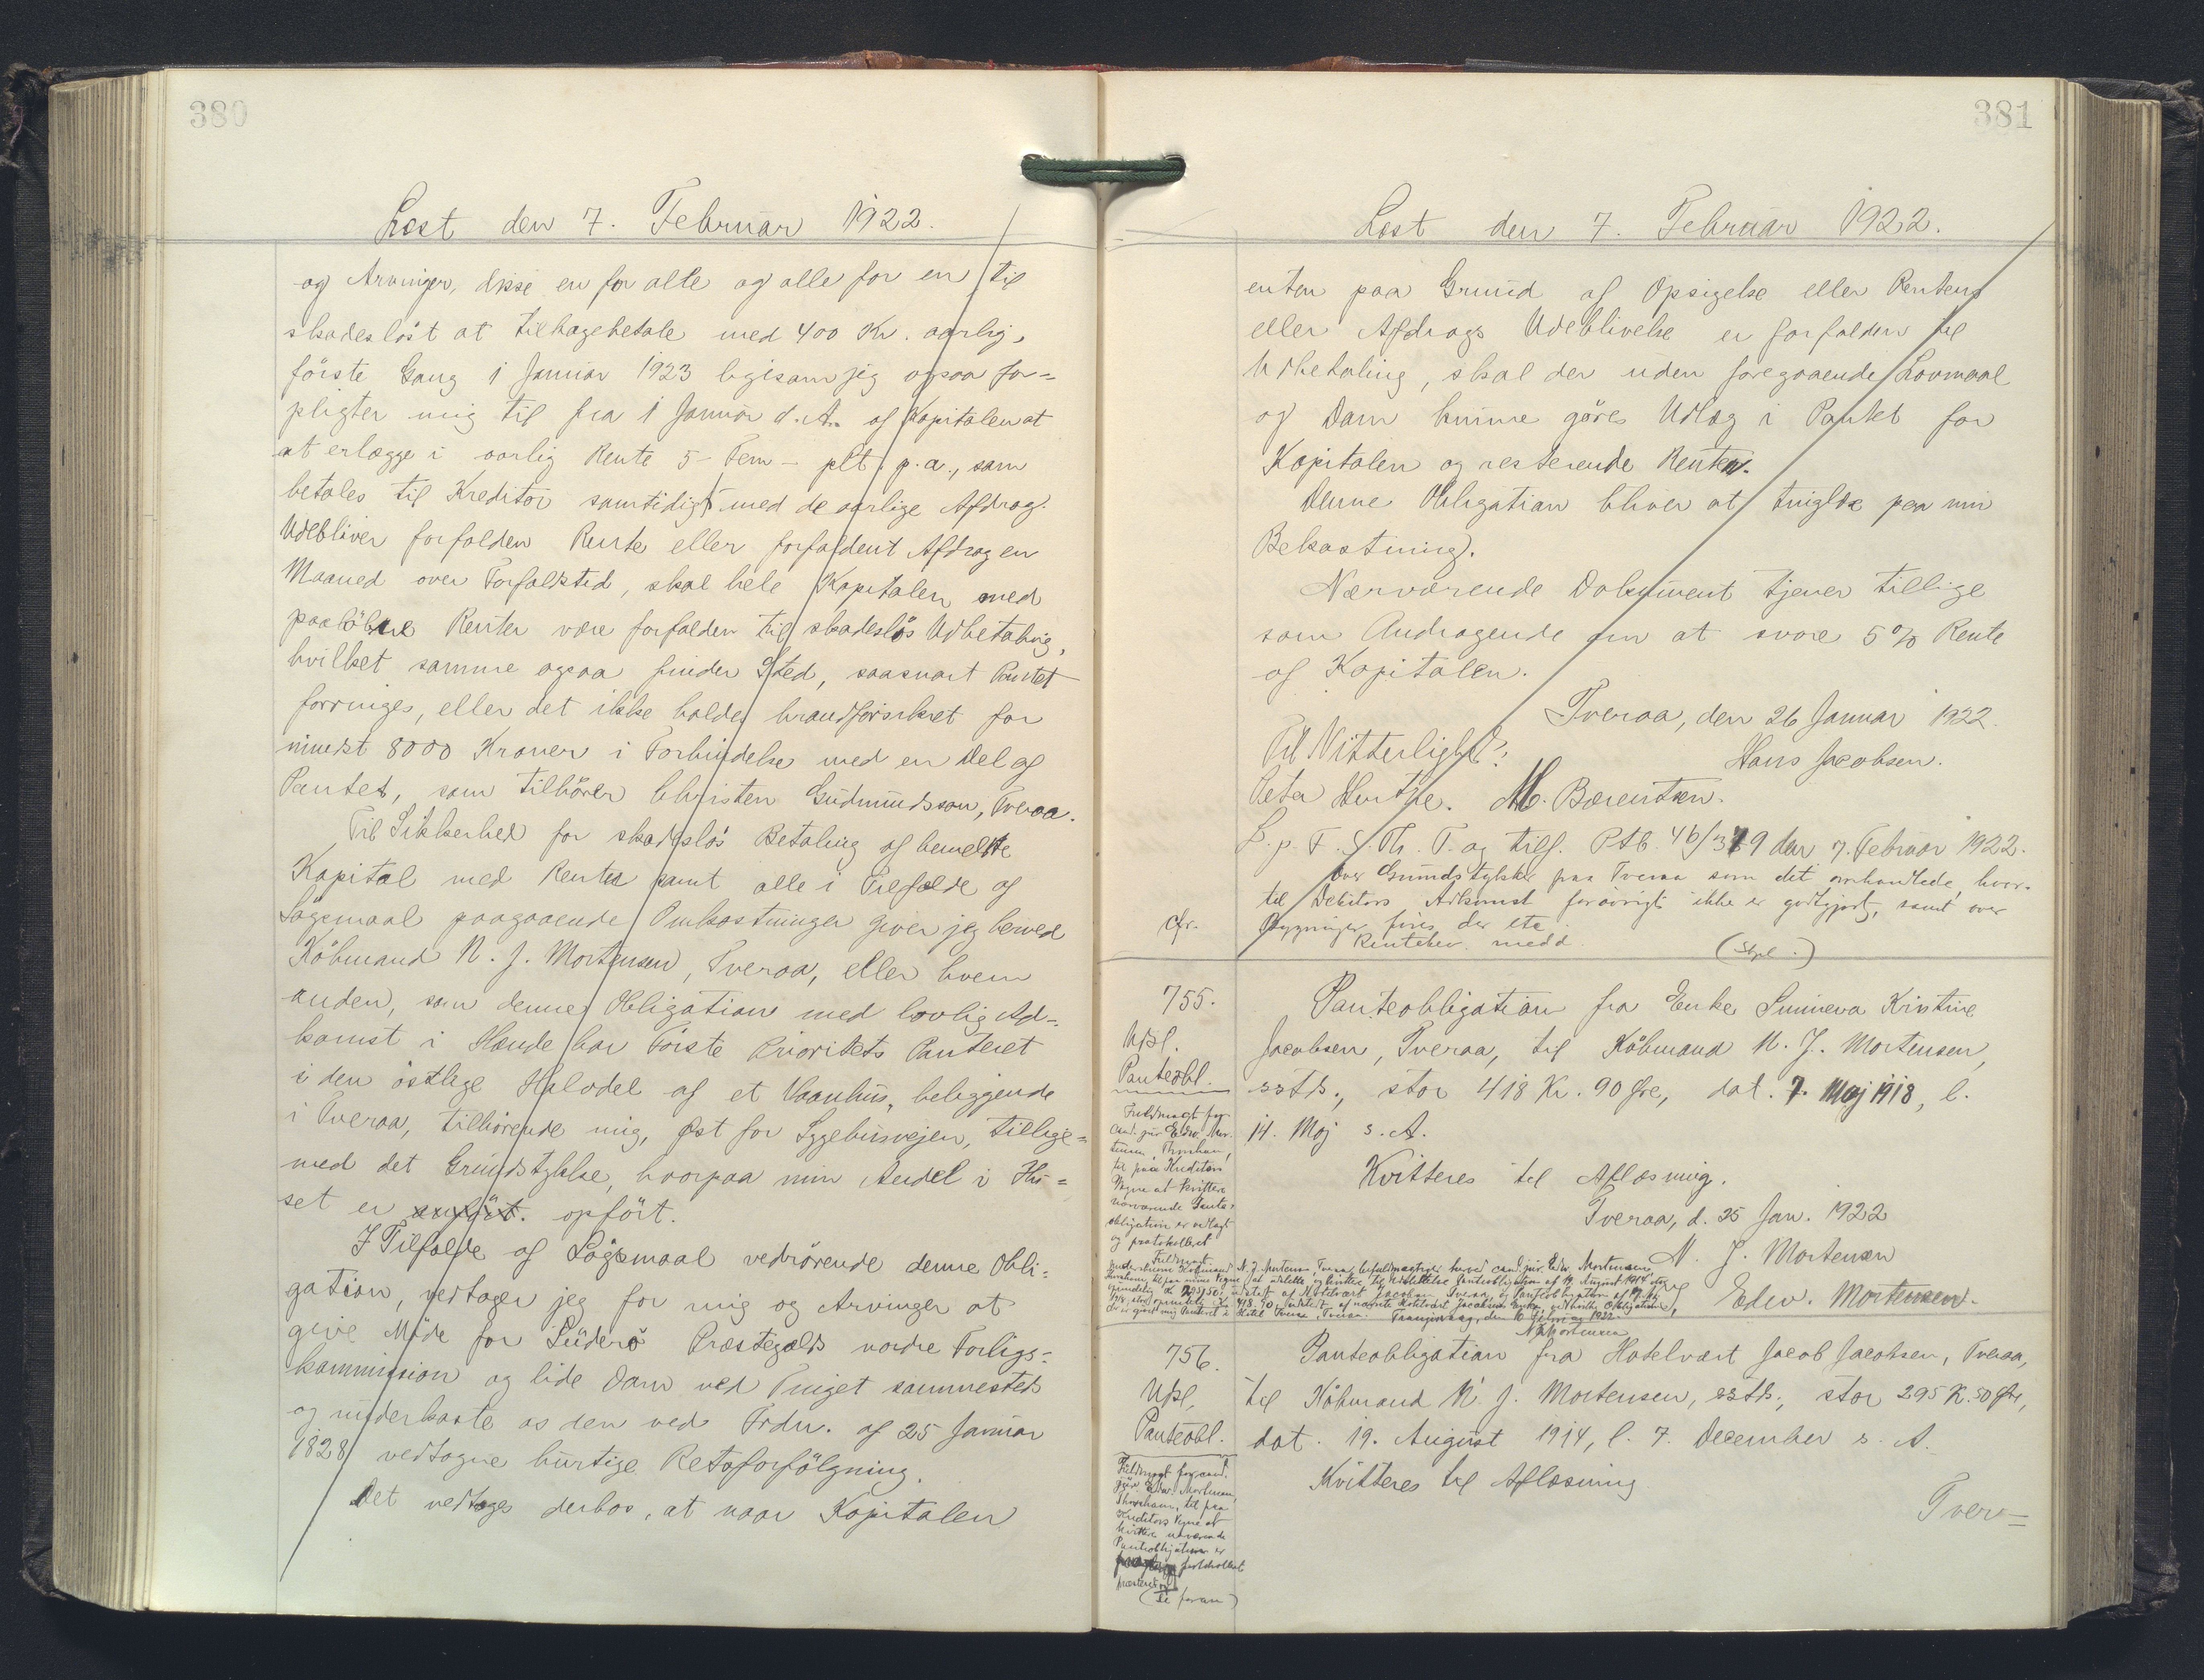 380
Læst den 7. Februar 1922.
og Arvinger, disse en for alle og alle for en til
skadesløst at tilbagebetale med 400 Kr. aarlig,
første Gang i Januar 1923 ligesom jeg ogsaa for=
pligter mig til fra 1 Januar d. A. af Kapitalen at
at erlægge i aarlig Rente 5 - Fem - pCt. p. a., som
betales til Kreditor samtidigt med de aarlige Afdrag.
Udebliver forfalden Rente eller forfaldent Afdrag en
Maaned over Forfaldstid, skal hele Kapitalen med
paaløbne Renter være forfalden til skadesløs Udbetaling,
hvilket samme ogsaa finder Sted, saasnart Pantet
forringes, eller det ikke holdes brandforsikret for
mindst 8000 Kroner i Forbindelse med en Del af
Pantet, som tilhører Christen Gudmundsson, Tveraa.
Til Sikkerhed for skadesløs Betaling af bemeldte
Kapital med Renter samt alle i Tilfælde af
Søgsmaal paagaaende Omkostninger giver jeg herved
Købmand N. J. Mortensen, Tveraa, eller hvem
anden, som denne Obligation med lovlig Ad-
komst i Hænde har Første Prioritets Panteret
i den østlige Halvdel af et Vaanhus, beliggende
i Tveraa, tilhørende mig, Øst for Sygehusvejen, tillige=
med det Grundstykke, hvorpaa min Andel i Hu=
set er opført.
I Tilfælde af Søgsmaal vedrørende denne Obli=
gation, vedtager jeg for mig og Arvinger at
give Møde for Suderø Præstegælds nordre Forligs=
kommission og lide Dom ved Tinget sammesteds
og underkaste os den ved Frdn. af 25 Januar
1828 vedtagne hurtige Retsforfølgning.
Det vedtages derhos, at naar Kapitalen
381
Læst den 7. Februar 1922.
enten paa Grund af Opsigelse eller Rentens
eller Afdrags Udeblivelse er forfalden til
Udbetaling, skal der uden foregaaende Lovmaal
og Dom kunne gøres Udlæg i Pantet for
Kapitalen og resterende Renter.
Denne Obligation bliver at tinglæse paa min
Bekostning.
Nærværende Dokument tjener tillige
som Andragende om at svare 5% Rente
af Kapitalen.
Tveraa, den 26 Januar 1922.
Til Vitterlighed: Hans Jacobsen.
Peter M. Bærentsen.
L. p. F. S. Th. T. og tilf. Ptb. 4b/379 den 7. Februar 1922.
over Grundstykke paa Tveraa som det omhandlede, hvor-
til Debitors Adkomst forøvrigt ikke er godtgjort, samt over
cfr. Bygninger fins der etc
Rentebev. medd.
755. Panteobligation fra Enke Sunneva Kristine
Udsl. Jacobsen, Tveraa, til Købmand N. J. Mortensen,
Panteobl. ssts., stor 418 Kr. 90 Øre, dat. 7. Maj 1918, l.
14. Maj s. A.
Fuldmagt for
cand. jur Edw. Mor-
tensen, Thorshavn,
til paa Kreditors
Vegne at kvittere
nærværende Pante-
obligation er vedlagt
og protokolleret
Kvitteres til Aflæsning.
Tveraa, d. 25 Jan. 1922
N. J. Mortensen
Edw. Mortensen
Fuldmagt.
Undertegnede Købmand N. J. Mortensen, Tveraa, befuldmægtiger herved cand. jur. Edw. Mortensen
Thorshavn, til paa mine Vegne at udslette og kvittere til Udslettelse Panteobligation af 19. August 1914 stor
oprindelig Kr 295,50, udstedt af Hotelvært Jacobsen, Tveraa, og Panteobligation af 7. Maj
1918, stor oprindelig Kr 418.90, udstedt af nævnte Hotelvært Jacobsens Enke, ved hvilke Obligationer
der er givet mig Panteret i Hotel Tveraa, Tveraa. Trangisvaag, den 10. Februar 1922.
N. J. Mortensen
756. Panteobligation fra Hotelvært Jacob Jacobsen, Tveraa,
Udsl. til Købmand N. J. Mortensen, ssts., stor 295 K. 50 Øre,
Panteobl. dat. 19. August 1914, l. 7. December s. A.
Fuldmagt for cand.
jur Edw. Mortensen,
Thorshavn, til paa
Kreditors Vegne at
kvittere nærværende
Panteobligation er
protokolleret
(Se foran)
Kvitteres til Aflæsning
Tver=